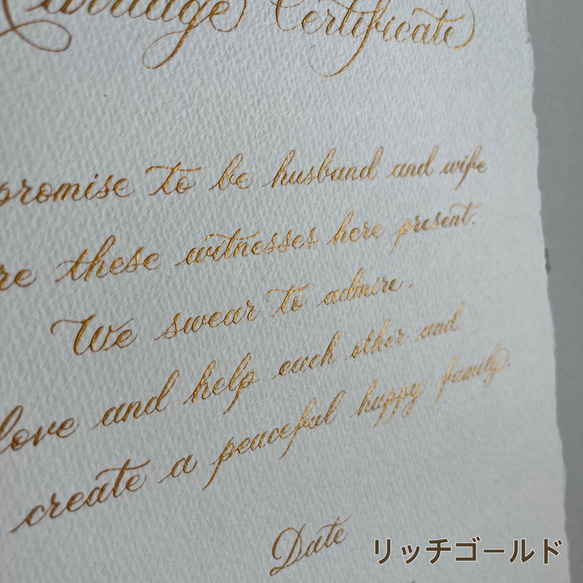 Marriage Certificate
promise to be husband and wife
re these witnesses here present.
We swear to admire,
love and help each other and
create a peaceful happy family.
Date
リッチゴールド